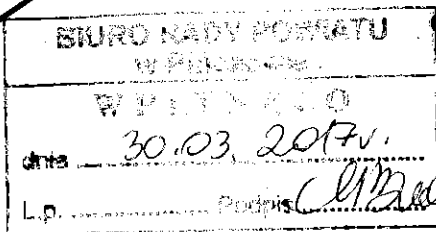 BIURO RADY POWIATU
W
WPŁYNĘŁO
dnia 30.03.2017r.
L.p. Podpis